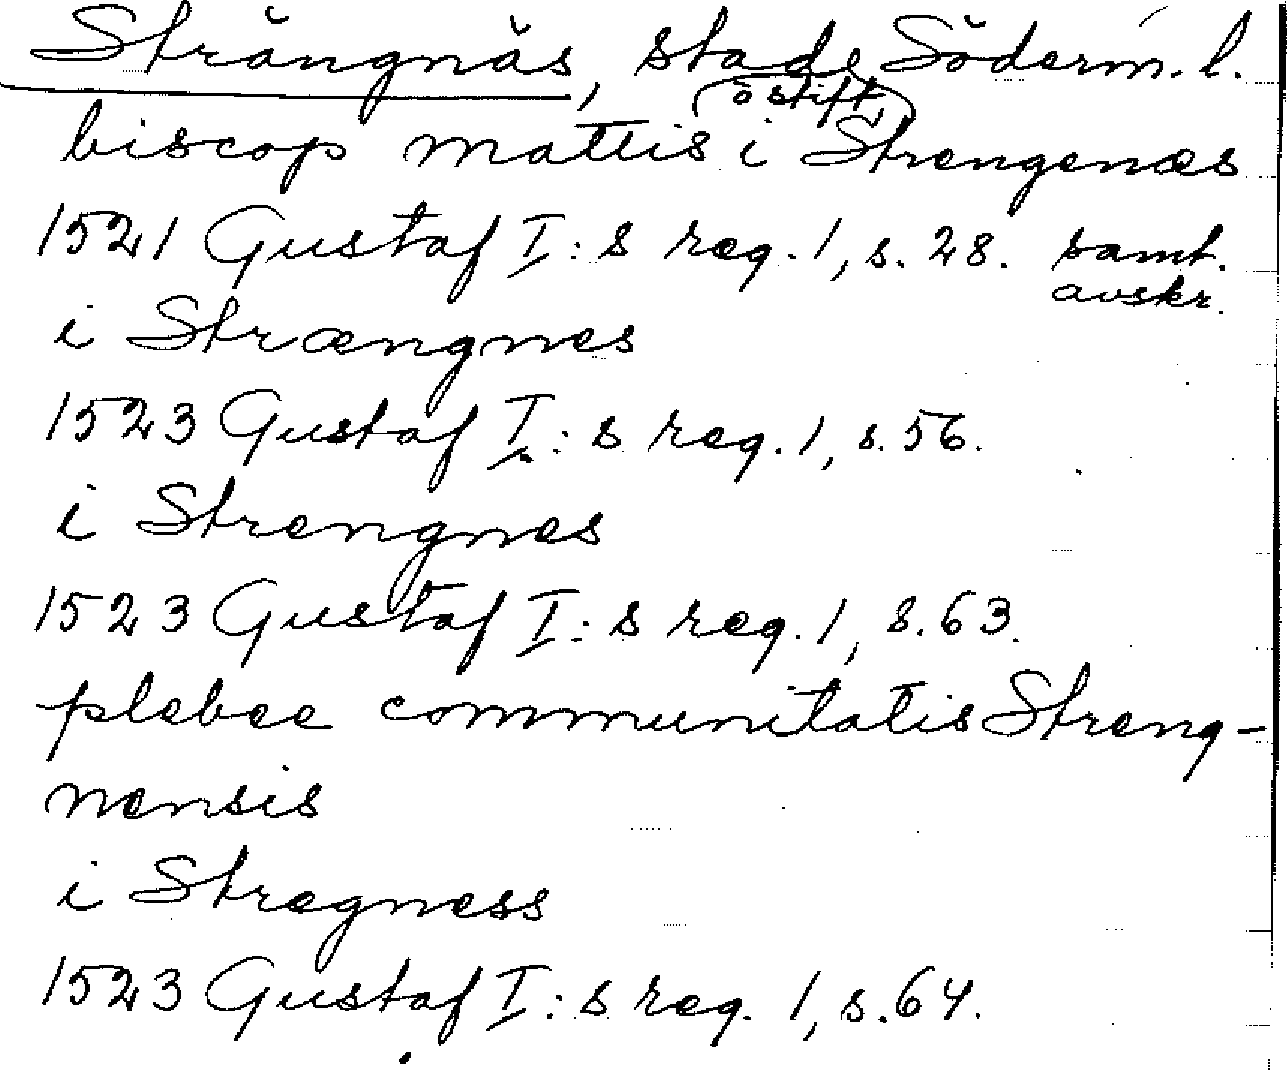 Strängnäs, stad, Söderm. l.
o stift,
biscop mattis i Strengenæs
1521 Gustaf I: s reg. 1, s. 28. samt.
avskr.
i Strængnes
1523 Gustaf I: s reg. 1, s. 56.
i Strengnes
1523 Gustaf I: s reg. 1, s. 63.
plebee communitatis Streng-
nensis
i Stregness
1523 Gustaf I: s reg. 1, s. 64.